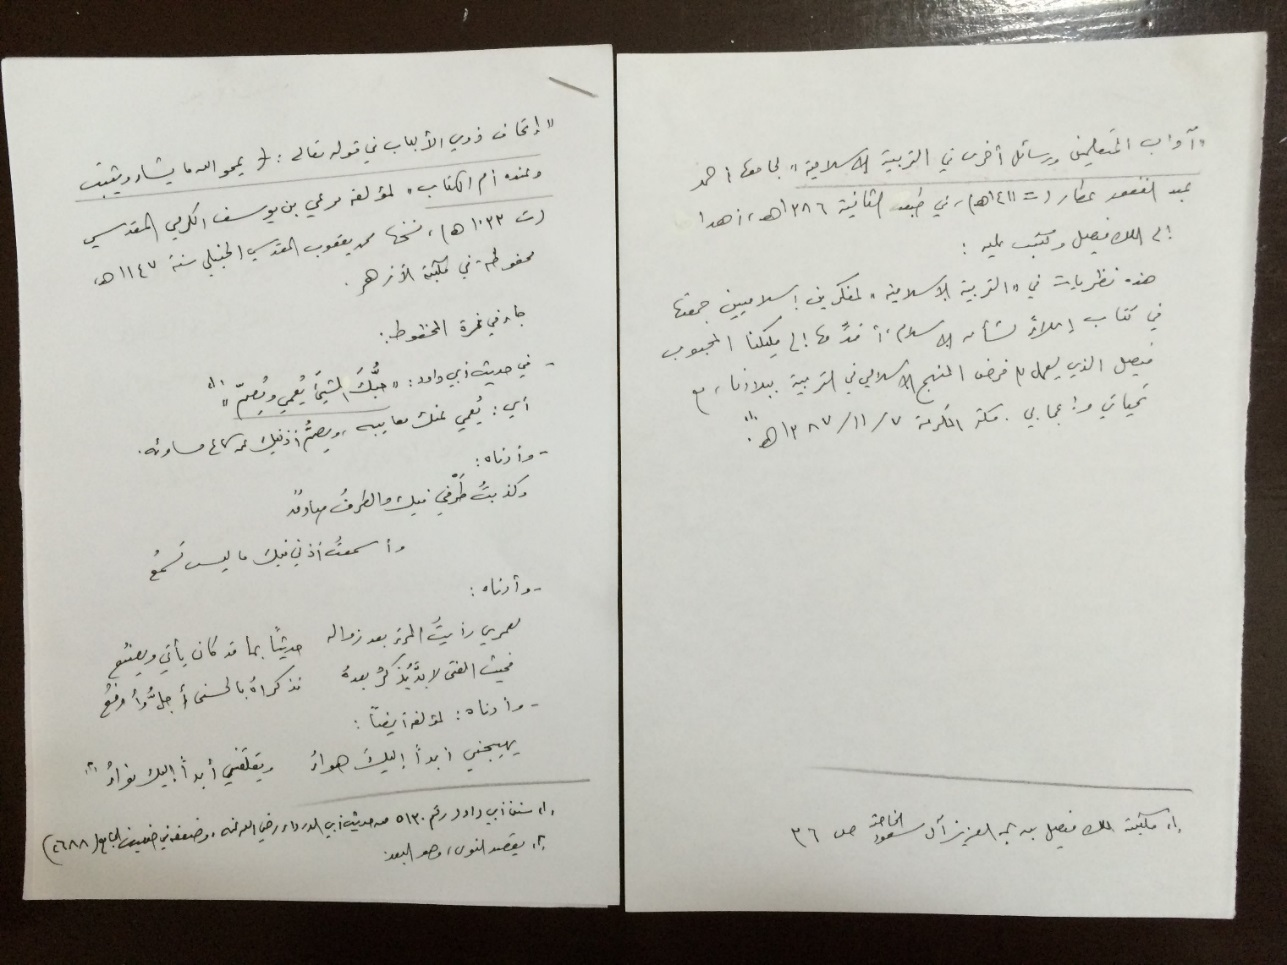 «آداب المتعلمين ورسائل أخرى في التربية الإسلامية» لجامعها أحمد
عبد الغفور عطار (ت ١٤١١هـ)، في طبعته الثانية ١٣٨٦هـ، أهداها
إلى الملك فيصل وكتب عليه:
هذه نظريات في «التربية الإسلامية» لمفكرين إسلاميين جمعتها
في كتاب إعلاءً لشأن الإسلام، أقدّمها إلى مليكنا المحبوب
فيصل الذي يعمل على فرض المنهج الإسلامي في التربية ببلادنا، مع
تحياتي وإعجابي. مكة المكرمة ٧/١١/١٣٨٧هـ.(١)
(١) مكتبة الملك فيصل بن عبد العزيز آل سعود الخاصة ص ٣٦
«إتحاف ذوي الألباب في قوله تعالى: ﴿يمحو الله ما يشاء ويثبت
وعنده أم الكتاب﴾» لمؤلفه مرعي بن يوسف الكرمي المقدسي
(ت ١٠٣٣هـ)، نسخها محمد يعقوب المقدسي الحنبلي سنة ١١٤٧هـ،
محفوظة في مكتبة الأزهر.
جاء في غرة المخطوط:
- في حديث أبي داود: «حبُّكَ الشيءَ يُعمي ويُصمّ»(١)
أي: يُعمي عنك معايبه، ويصمُّ أذنيك عن سماع مساوئه.
- وأدناه:
وكذبتُ طَرْفي فيك والطرفُ صادقٌ
وأسمعتُ أذني فيكَ ما ليس تَسمعُ
- وأدناه:
لعمري رأيتُ المرءَ بعد زواله حديثًا بما قد كان يأتي ويصنع
فحيث الفتى لا بدَّ يُذكرُ بعدهُ فذكراهُ بالحسنى أجلُّ وأرفعُ
- وأدناه: لمؤلفه أيضًا:
يهيجني أبدًا إليكَ هواءُ ويقلقني أبدًا إليك نواءُ(٢)
(١) سنن أبي داود رقم ٥١٣٠ من حديث أبي الدرداء رضي الله عنه، وضعفه في ضعيف الجامع (٢٦٨٨)
(٢) يقصد النوى، وهو البعد.